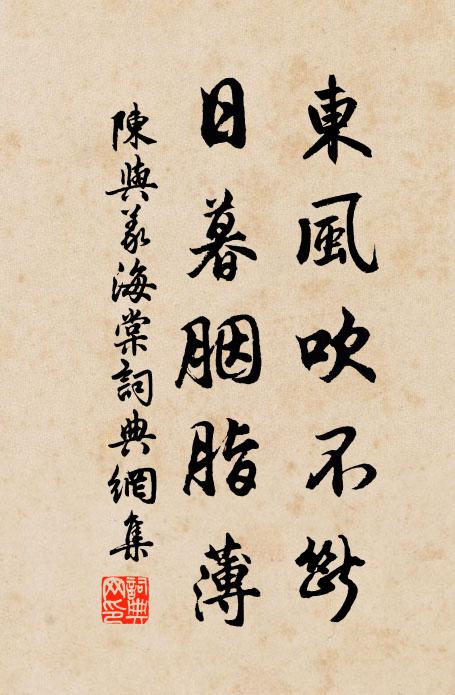 東風吹不斷
日暮胭脂薄
陳與義海棠詞典網集
詞典網印